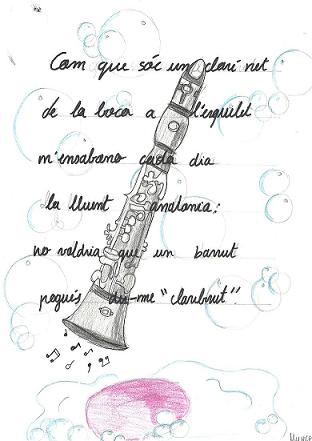 Com que sóc un clarinet
de la boca a l'esquellet
m'ensabono cada dia
la lluent anatomia;
no voldria que un barrut
pogués dir-me "claribrut".